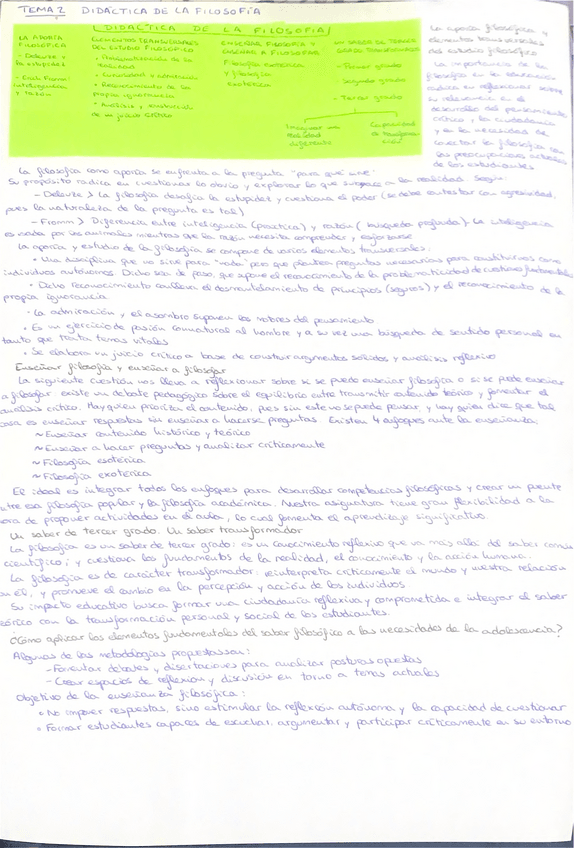 TEMA 2 DIDÁCTICA DE LA FILOSOFÍA
DIDÁCTICA DE LA FILOSOFÍA
LA APORÍA
FILOSÓFICA
- Deleuze y
la estupidez
- Erich Fromm:
inteligencia
y razón
ELEMENTOS TRANSVERSALES
DEL ESTUDIO FILOSÓFICO
• Problematización de la
realidad
• Curiosidad y admiración
• Reconocimiento de la
propia ignorancia
• Análisis y
de un juicio crítico
ENSEÑAR FILOSOFÍA Y
ENSEÑAR A FILOSOFAR
Filosofía esotérica
y filosofía
exotérica
UN SABER DE TERCER
GRADO TRANSFORMADOR
- Primer grado
- Segundo grado
- Tercer grado
Imaginar una
realidad
diferente
Capacidad
de transforma-
ción
La aporía filosófica y
elementos transversales
del estudio filosófico
La importancia de la
filosofía en la educación
radica en reflexionar sobre
su relevancia en el
desarrollo del pensamiento
crítico, la ciudadanía
y en la necesidad de
conectar la filosofía con
las preocupaciones actuales
de los estudiantes
La filosofía como aporía se enfrenta a la pregunta "para qué sirve"
Su propósito radica en cuestionar lo obvio y explorar lo que subyace a la realidad. Según:
- Deleuze > la filosofía desafía la estupidez y cuestiona el poder (se debe contestar con agresividad,
pues la naturaleza de la pregunta es tal)
- Fromm > Diferencia entre inteligencia (práctica) y razón (búsqueda profunda). La inteligencia
es usada por los animales mientras que la razón necesita comprender, es
La aporía y estudio de la filosofía se compone de varios elementos transversales:
• Una disciplina que no sirve para "nada" pero que plantea preguntas necesarias para constituirnos como
individuos autónomos. Dicho sea de paso, que supone el reconocimiento de la problematicidad de cuestiones fundamentales
• Dicho reconocimiento conlleva el desmantelamiento de principios (seguros) y el reconocimiento de la
propia ignorancia
- La admiración y el asombro suponen los motores del pensamiento
• Es un ejercicio de pasión connatural al hombre y a su vez una búsqueda de sentido personal en
tanto que trata temas vitales
• Se elabora un juicio crítico a base de construir argumentos sólidos y análisis reflexivo
Enseñar filosofía y enseñar a filosofar
La siguiente cuestión nos lleva a reflexionar sobre si se puede enseñar filosofía o si se puede enseñar
a filosofar. existe un debate pedagógico sobre el equilibrio entre transmitir contenido teórico y fomentar el
análisis crítico. Hay quien prioriza el contenido, pues sin este no se puede pensar, y hay quien dice que tal
cosa es enseñar respuestas sin enseñar a hacerse preguntas. Existen 4 enfoques ante la enseñanza:
~ Enseñar contenido histórico y teórico
~ Enseñar a hacer preguntas y analizar críticamente
~ Filosofía esotérica
~ Filosofía exotérica
El ideal es integrar todos los enfoques para desarrollar competencias filosóficas y crear un puente
entre esa filosofía popular y la filosofía académica. Nuestra asignatura tiene gran flexibilidad a la
hora de proponer actividades en el aula, lo cual fomenta el aprendizaje significativo
Un saber de tercer grado. Un saber transformador
La filosofía es un saber de tercer grado: es un conocimiento reflexivo que va más allá del saber común
científico; y cuestiona los fundamentos de la realidad, el conocimiento y la acción humana.
La filosofía es de carácter transformador: reinterpreta críticamente el mundo y nuestra relación
con él, y promueve el cambio en la percepción y acción de los individuos
Su impacto educativo busca formar una ciudadanía reflexiva y comprometida e integrar el saber
teórico con la transformación personal y social de los estudiantes.
¿Cómo aplicar los elementos fundamentales del saber filosófico a las necesidades de la adolescencia?
Algunas de las metodologías propuestas son:
- Fomentar debates y disertaciones para analizar posturas opuestas
- Crear espacios de reflexión y discusión en torno a temas actuales
Objetivo de la enseñanza filosófica:
• No imponer respuestas, sino estimular la reflexión autónoma y la capacidad de cuestionar
• Formar estudiantes capaces de escuchar, argumentar y participar críticamente en su entorno